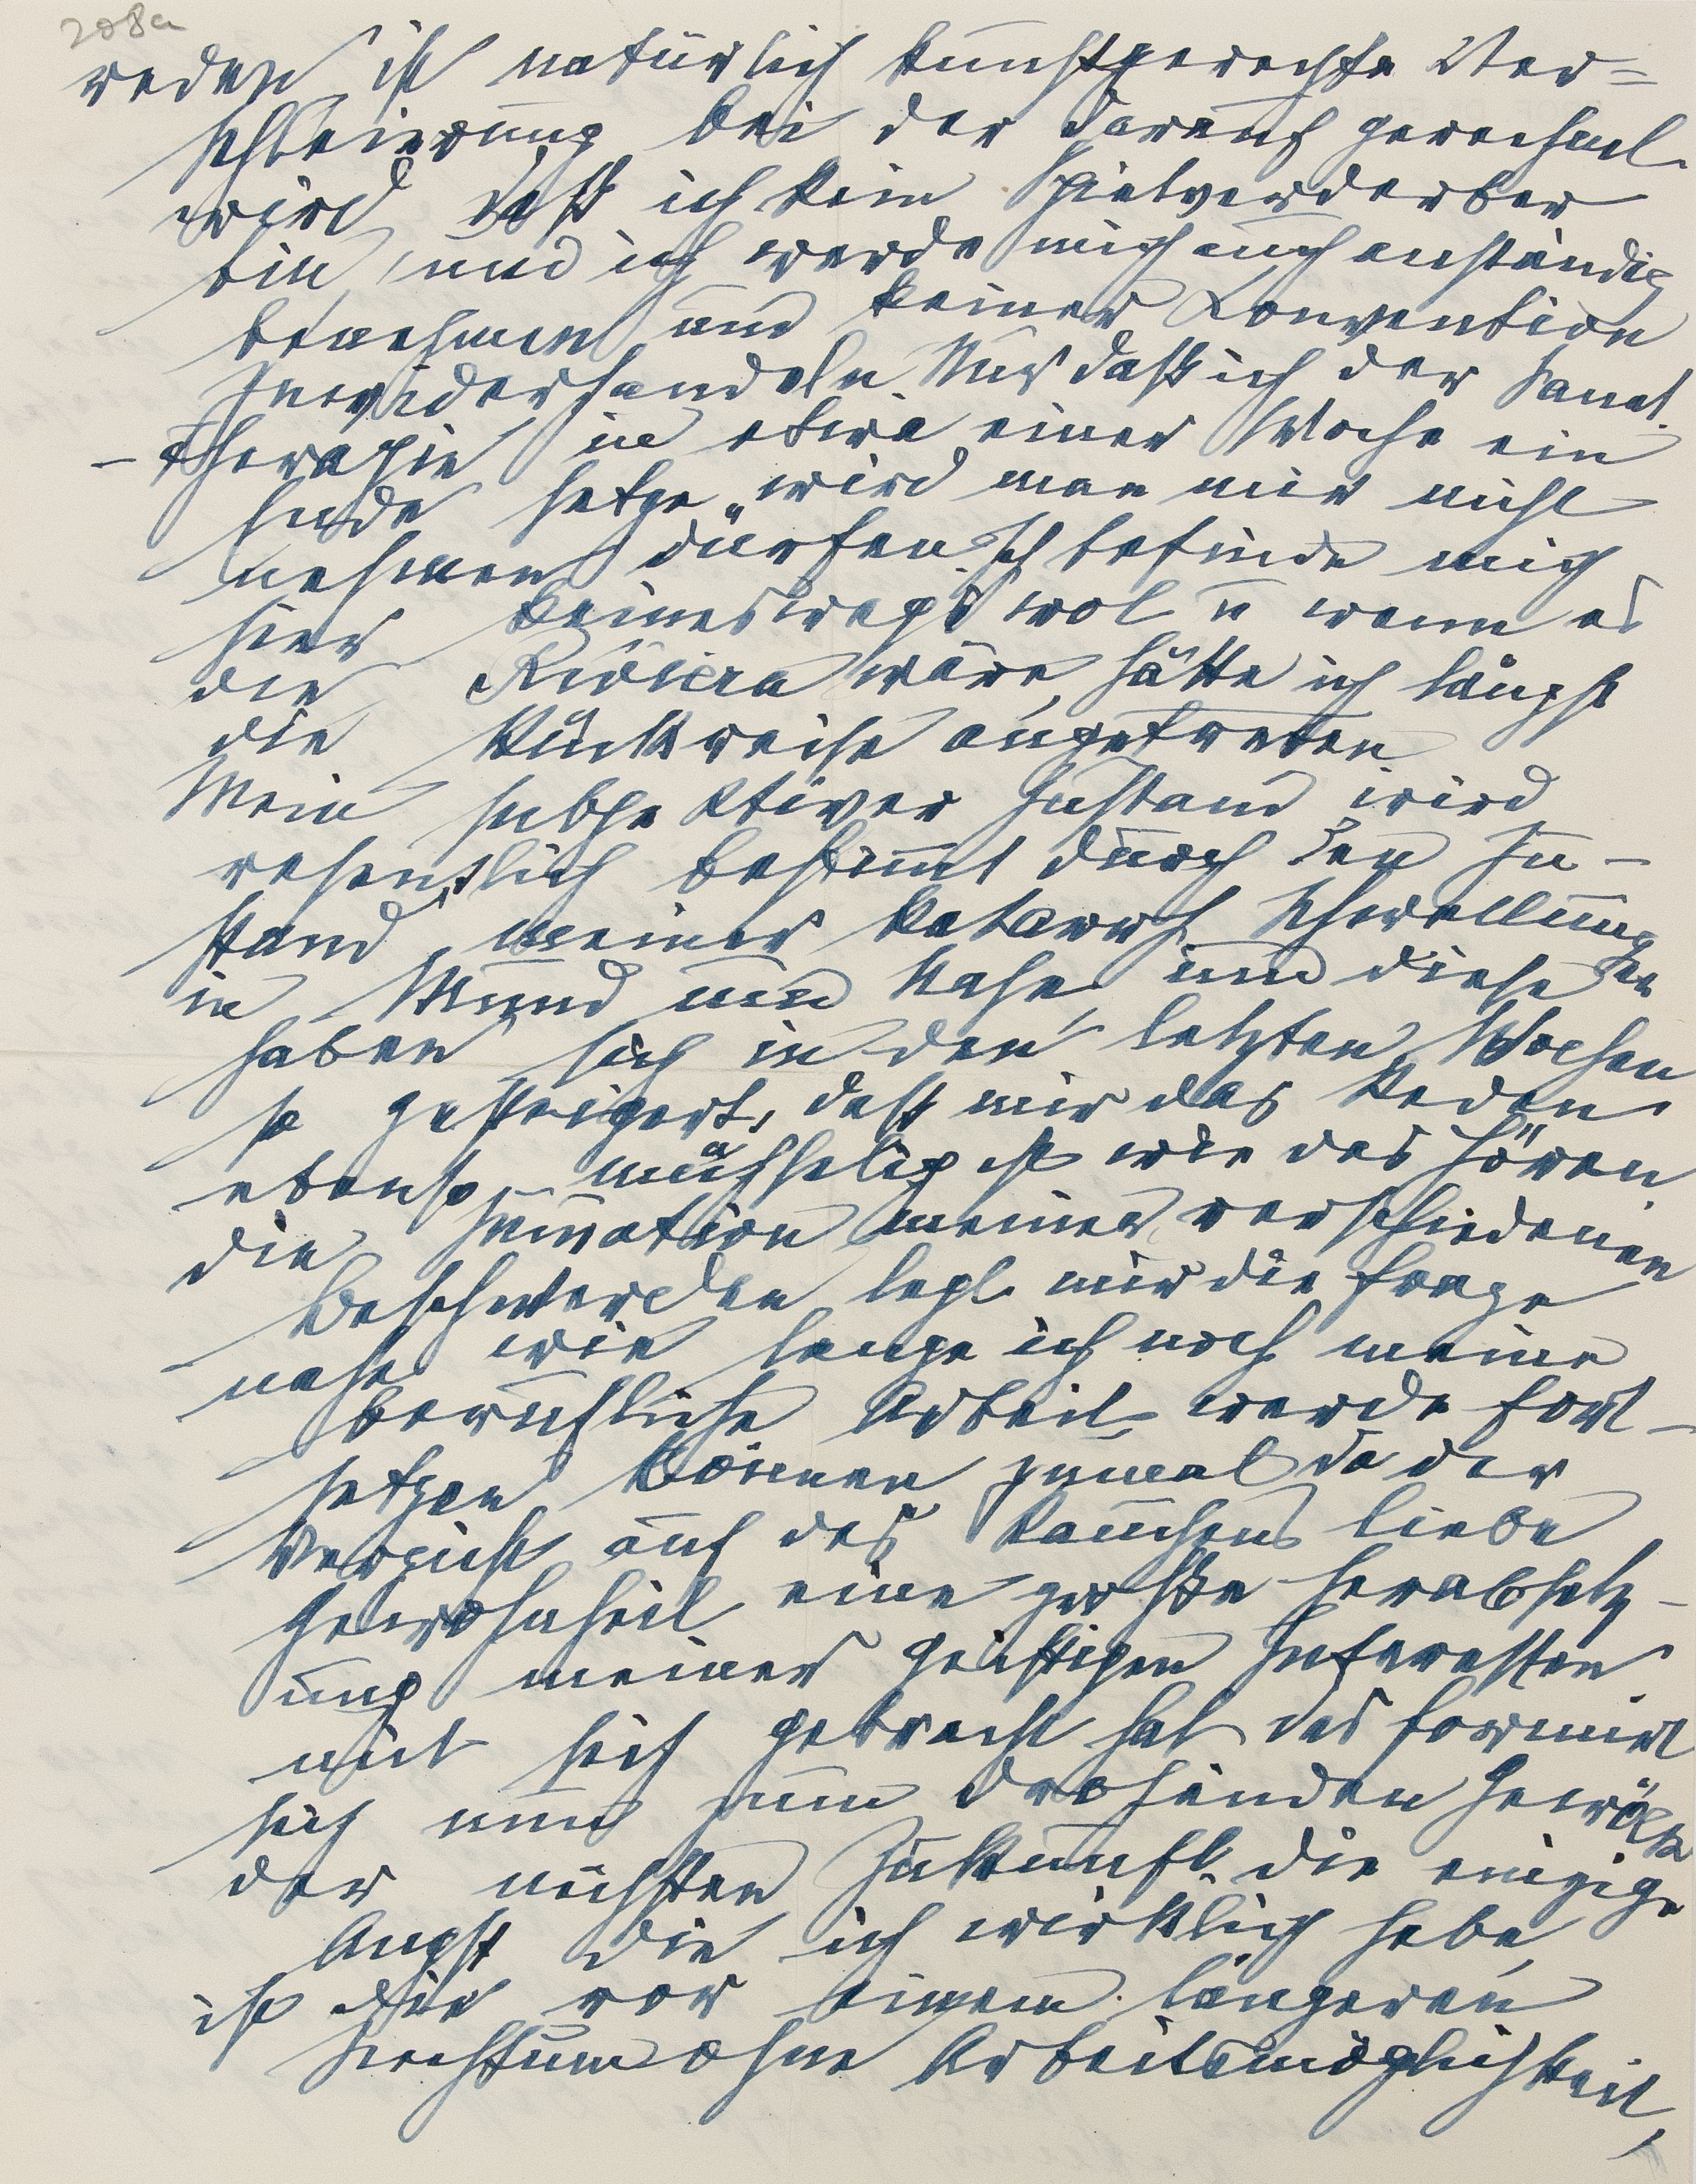 208a
reden ist natürlich kunstgerechte Ver=
schleierung bei der darauf gerechnet
wird, daß ich kein Spielverderber
bin, und ich werde mich auch anständig
benehmen und keiner Konvention
zuwiderhandeln. Nur daß ich der Sanat.
-therapie in etwa einer Woche ein
Ende setze, wird man mir nicht
nehmen dürfen. Ich befinde mich
hier keineswegs wol u wenn es
die Riviera wäre, hätte ich längst
die Rückreise angetreten
Mein subjektiver Zustand wird
wesentlich bestimmt durch den Zu-
stand meiner katarrh. Schwellungen
in Mund und Nase und diese
haben sich in den letzten Wochen
so gesteigert, daß mir das Reden
ebenso mühselig ist wie das Hören.
die Summation meiner verschiedenen
Beschwerden legt mir die Frage
nahe wie lange ich noch meine
berufliche Arbeit werde fort-
setzen können zumal da der
Verzicht auf des Rauchens liebe
Gewohnheit eine große Herabsetz-
ung meiner geistigen Interessen
mit sich gebracht hat das formirt
sich nun zum drohenden Gewölk
der nächsten Zukunft. die einzige
Angst die ich wirklich habe,
ist die vor einem längeren
Siechtum ohne Arbeitsmöglichkeit,